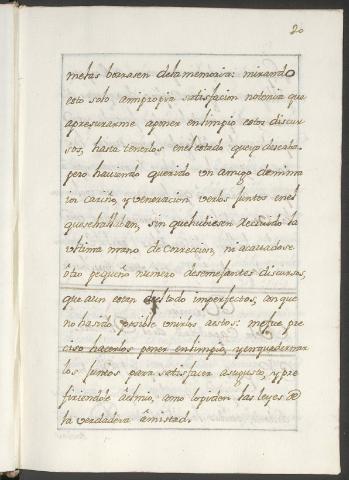 20
me las borrasen dela memoria: mirando
esto solo amipropia satisfacion notenia que
apresurarme aponer enlimpio estos discur
sos, hasta tenerlos enelestado queyo deseaba.
pero haviendo querido un amigo demima
ior cariño, y veneracion verlos juntos enel
quesehallaban, sin quehubiesen recivido la
ultima mano de correccion, ni acavadose
otro pequeño numero desemejantes discursos,
que aun estan deltodo imperfectos, conque
no hasido posible unirlos aestos: mefue pre
ciso hacerlos poner enlimpio, yenquadernar
los juntos para satisfacer asugusto, y pre
firiendole âelmio, como lopiden las leyes de
la verdadera âmistad.